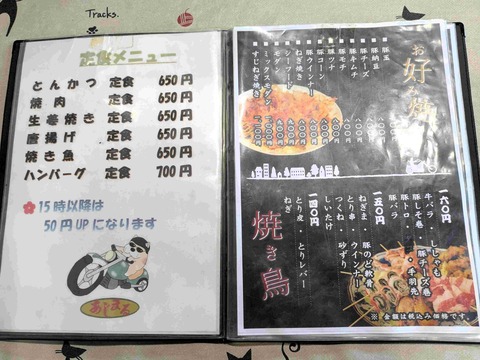 Tracks.
定食メニュー
とんかつ 定食 650円
焼肉 定食 650円
生姜焼き 定食 650円
唐揚げ 定食 650円
焼き魚 定食 650円
ハンバーグ 定食 700円
15時以降は
50円UPになります
お好み焼
豚玉
豚納豆
豚チーズ
豚キムチ
豚モチ
豚ツナ
豚コーン
豚ウインナー
シーフード
モダン
ミックスモダン
すじねぎ焼き
焼き鳥
一六〇円
牛バラ ・ ししゃも
豚しそ巻 ・ 豚チーズ巻
豚トロ ・ 手羽先
豚バラ
一五〇円
ねぎま ・ 豚のど軟骨
とり串 ・ ウインナー
つくね ・ 砂ずり
しいたけ
一四〇円
とり皮 ・ とりレバー
ねぎ
※金額は税込み価格です。